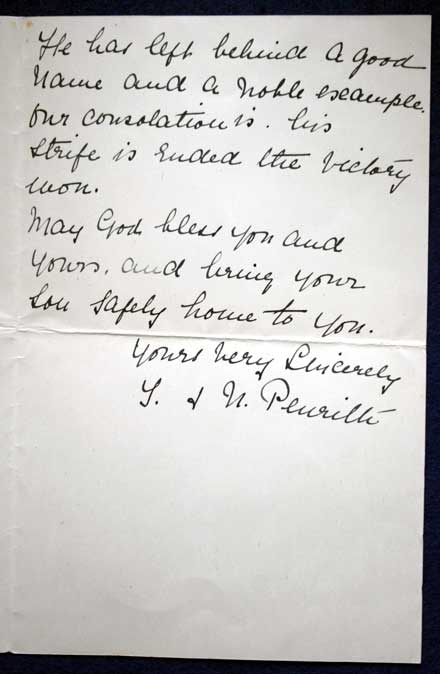 He has left behind a good
Name and a Noble example.
Our consolation is. his
Strife is Ended the Victory
won.
May God bless you and
Yours, and bring your
Son Safely home to you.
Yours Very Sincerely
& N. Penrith